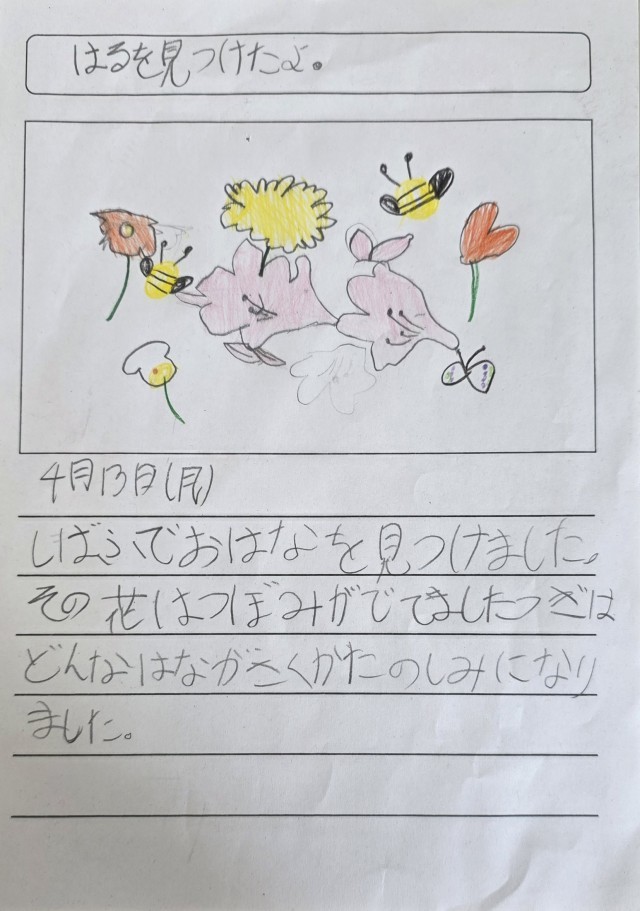 はるを見つけたよ。
4月13日(月)
しばふでおはなを見つけました。
その花はつぼみがでてきましたつぎは
どんなはながさくかたのしみになり
ました。